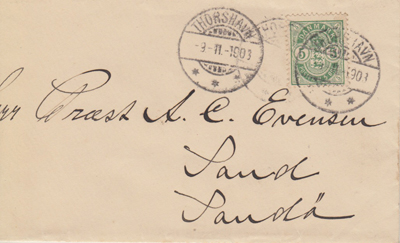 THORSHAVN
-9-11-1903
DANMARK
5
HAVN
1903
Præst A. C. Evensen
Sand
Sandö